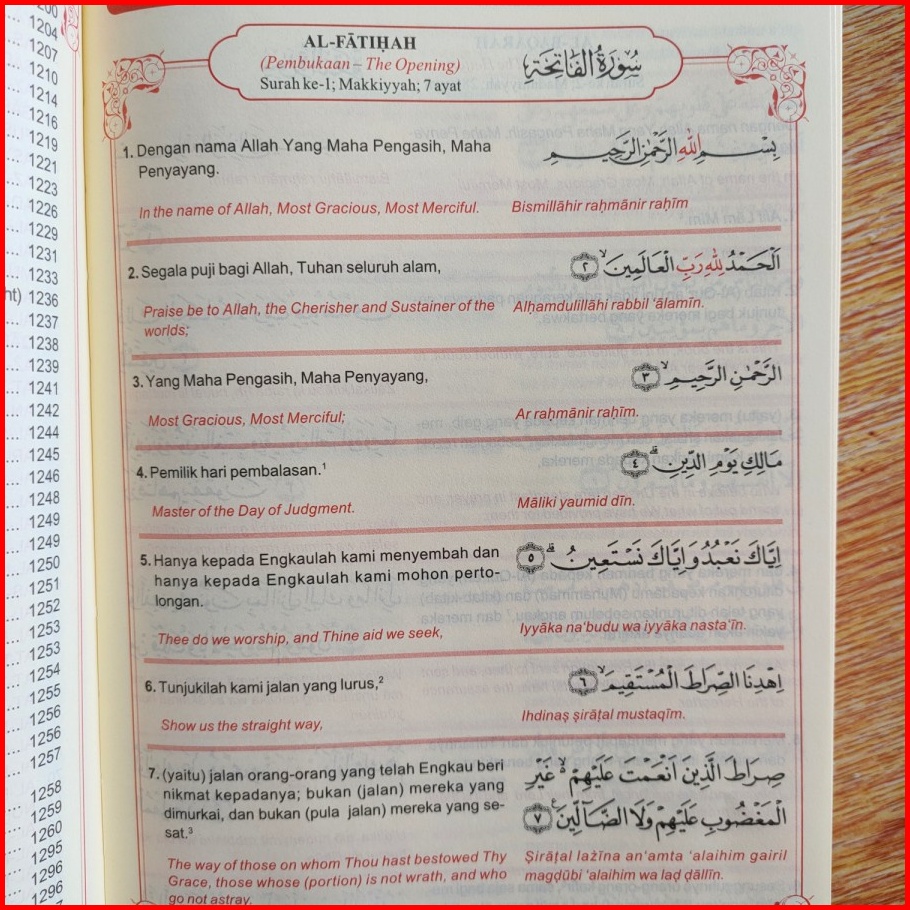 1200
1204
1207
1210
1214
1216
1219
1221
1223
1226
1229
1231
1233
1236
1237
1238
1239
1241
1242
1244
1245
1246
1248
1249
1249
1250
1251
1252
1253
1253
1254
1255
1256
1256
1257
1258
1259
1260
1295
1296
1296
AL-FĀTIḤAH
(Pembukaan – The Opening)
Surah ke-1; Makkiyyah; 7 ayat
سُورَةُ الْفَاتِحَةِ
1. Dengan nama Allah Yang Maha Pengasih, Maha
Penyayang.
بِسْمِ اللّٰهِ الرَّحْمٰنِ الرَّحِيْمِ
In the name of Allah, Most Gracious, Most Merciful.
Bismillāhir raḥmānir raḥīm
2. Segala puji bagi Allah, Tuhan seluruh alam,
اَلْحَمْدُ لِلّٰهِ رَبِّ الْعَالَمِيْنَۙ ٢
Praise be to Allah, the Cherisher and Sustainer of the
worlds;
Alḥamdulillāhi rabbil ‘ālamīn.
3. Yang Maha Pengasih, Maha Penyayang,
الرَّحْمٰنِ الرَّحِيْمِۙ ٣
Most Gracious, Most Merciful;
Ar raḥmānir raḥīm.
4. Pemilik hari pembalasan.¹
مَالِكِ يَوْمِ الدِّيْنِۗ ٤
Master of the Day of Judgment.
Māliki yaumid dīn.
5. Hanya kepada Engkaulah kami menyembah dan
hanya kepada Engkaulah kami mohon perto-
longan.
اِيَّاكَ نَعْبُدُ وَاِيَّاكَ نَسْتَعِيْنُۗ ٥
Thee do we worship, and Thine aid we seek,
Iyyāka na‘budu wa iyyāka nasta‘īn.
6. Tunjukilah kami jalan yang lurus,²
اِهْدِنَا الصِّرَاطَ الْمُسْتَقِيْمَۙ ٦
Show us the straight way,
Ihdinaṣ ṣirāṭal mustaqīm.
7. (yaitu) jalan orang-orang yang telah Engkau beri
nikmat kepadanya; bukan (jalan) mereka yang
dimurkai, dan bukan (pula jalan) mereka yang se-
sat.³
صِرَاطَ الَّذِيْنَ اَنْعَمْتَ عَلَيْهِمْ ۙ غَيْرِ
الْمَغْضُوْبِ عَلَيْهِمْ وَلَا الضَّاۤلِّيْنَ ٧
The way of those on whom Thou hast bestowed Thy
Grace, those whose (portion) is not wrath, and who
go not astray.
Ṣirāṭal lażīna an‘amta ‘alaihim gairil
magḍūbi ‘alaihim wa laḍ ḍāllīn.